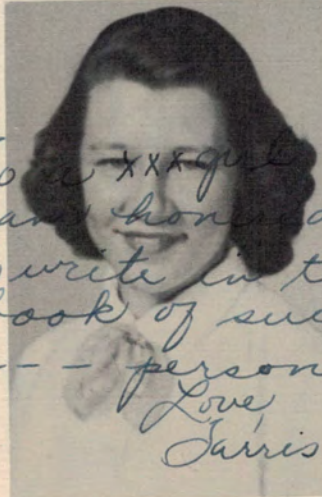 o a xxx girl
am honored
write in t
book of suc
- - - person
Love,
Farris